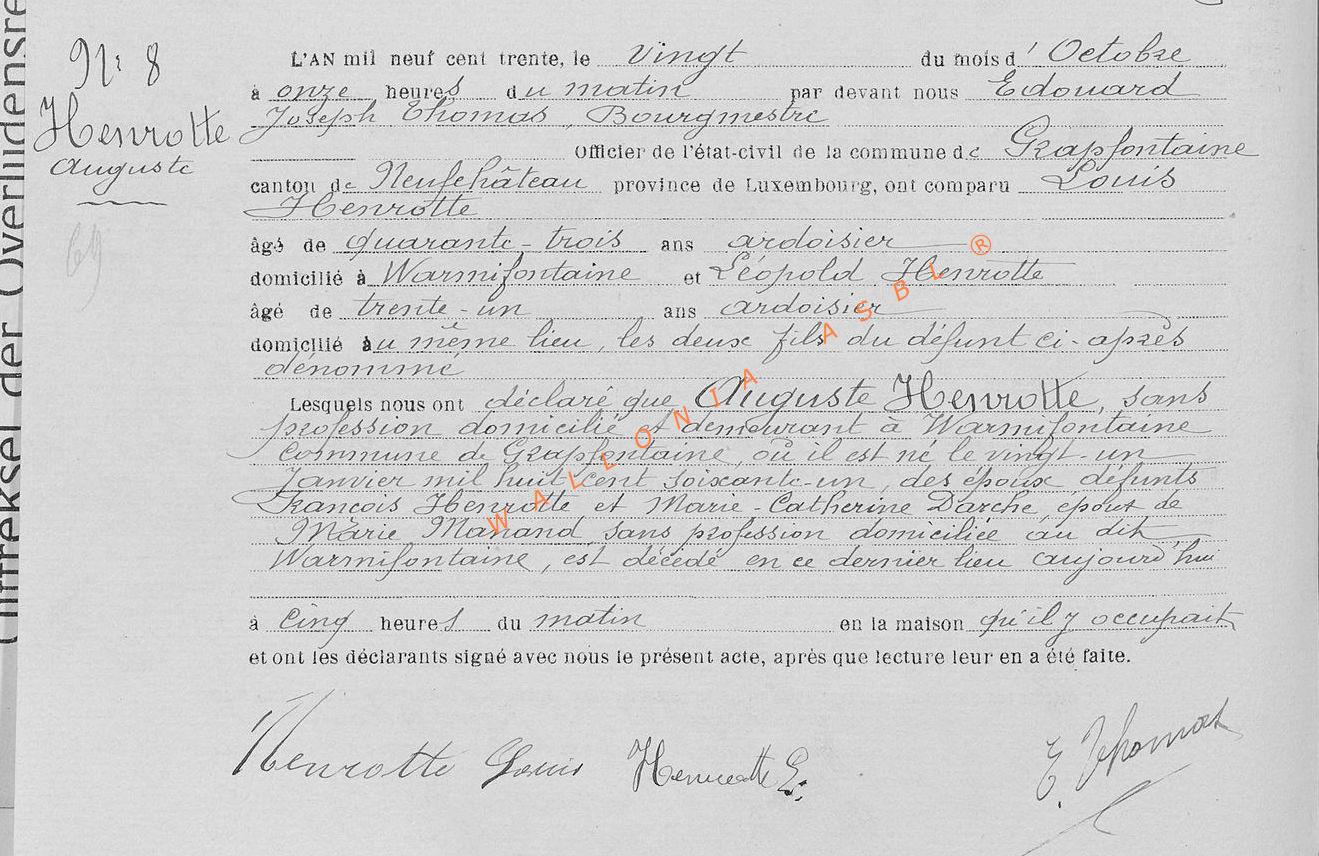 Uittreksel der Overlijdensre
Nr 8
Henrotte
Auguste
69
L'AN mil neuf cent trente, le vingt du mois d'Octobre
à onze heures du matin par devant nous Edouard
Joseph Thomas, Bourgmestre
Officier de l'état-civil de la commune de Grapfontaine
canton de Neufchâteau province de Luxembourg, ont comparu Louis
Henrotte
âgé de quarante-trois ans ardoisier
domicilié à Warmifontaine et Léopold Henrotte
âgé de trente-un ans ardoisier
domicilié au même lieu, les deux fils du défunt ci-après
dénommé
Lesquels nous ont déclaré que Auguste Henrotte, sans
profession domicilié et demeurant à Warmifontaine
Commune de Grapfontaine, où il est né le vingt-un
Janvier mil huit cent soixante-un, des époux défunts
François Henrotte et Marie-Catherine Darche, époux de
Marie Manand, sans profession domiciliée au dit
Warmifontaine, est décédé en ce dernier lieu aujourd'hui
à cinq heures du matin en la maison qu'il y occupait
et ont les déclarants signé avec nous le présent acte, après que lecture leur en a été faite.
Henrotte Louis Henrotte L. E. Thomas
WALLONIA ASBL ®